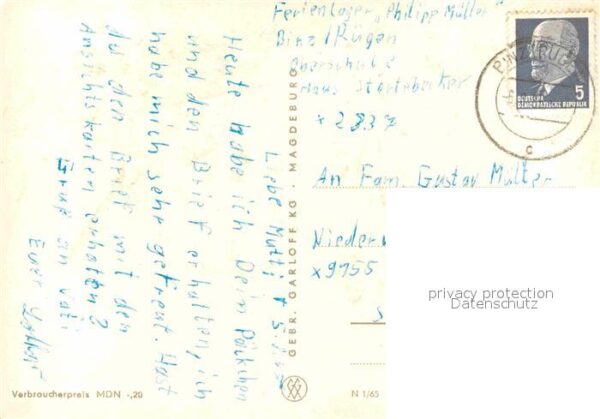 Ferienlager „Philipp Müller"
Binz/Rügen
Oberschule
Haus Störtebecker
x 2837
An Fam. Gustav Müller
Nieder
x 9155
Liebe Mutti!
Heute habe ich Dein Päckchen
und den Brief erhalten, ich
habe mich sehr gefreut. Hast
du den Brief mit den
Ansichtskarten erhalten?
Gruß an Vati
Euer
GEBR. GARLOFF KG · MAGDEBURG
Verbraucherpreis MDN -,20
N 1/65
5
DEUTSCHE
DEMOKRATISCHE REPUBLIK
BINZ
c
privacy protection
Datenschutz